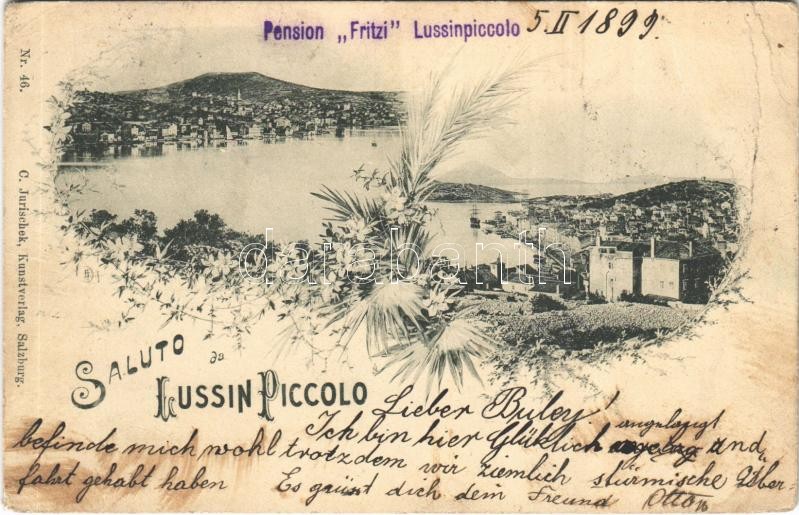 Pension „Fritzi" Lussinpiccolo 5. II 1899.
Nr. 46.
C. Jurischek, Kunstverlag, Salzburg.
darabanth
SALUTO
da
LUSSIN PICCOLO
Lieber Buley!
Ich bin hier Glücklich angelangt und
befinde mich wohl trotzdem wir ziemlich stürmische Über-
fahrt gehabt haben Es grüsst dich dein Freund Otto